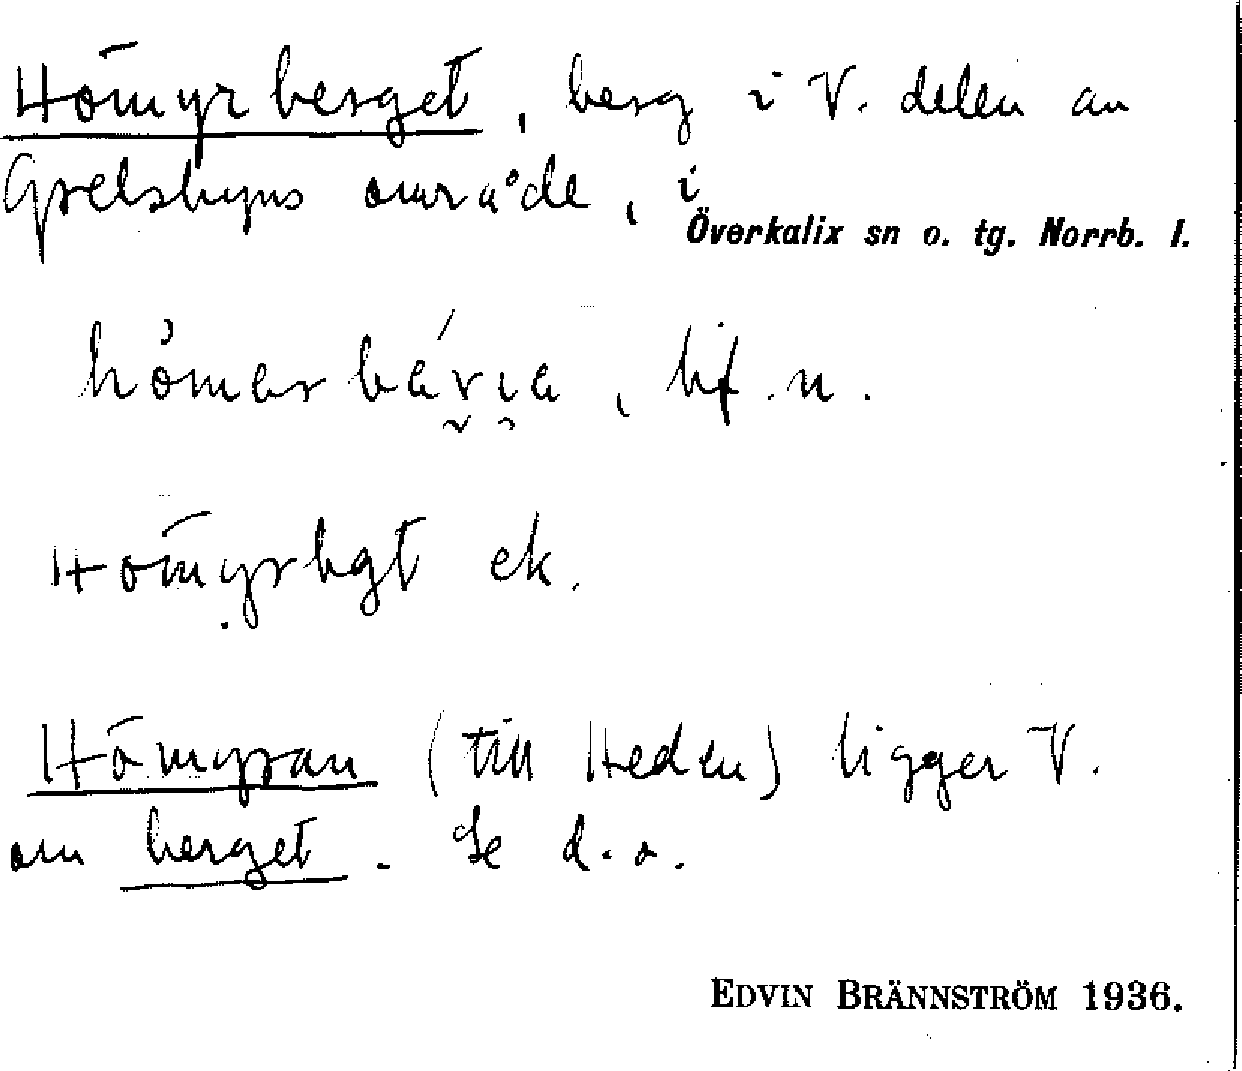 Hömyrberget, berg i V. delen av
Grelsbyns område, i
Överkalix sn o. tg. Norrb. l.
bif. n.
Hömyrbgt ek.
Hömyran (till Heden) ligger V.
om berget. Se d. o.
EDVIN BRÄNNSTRÖM 1936.